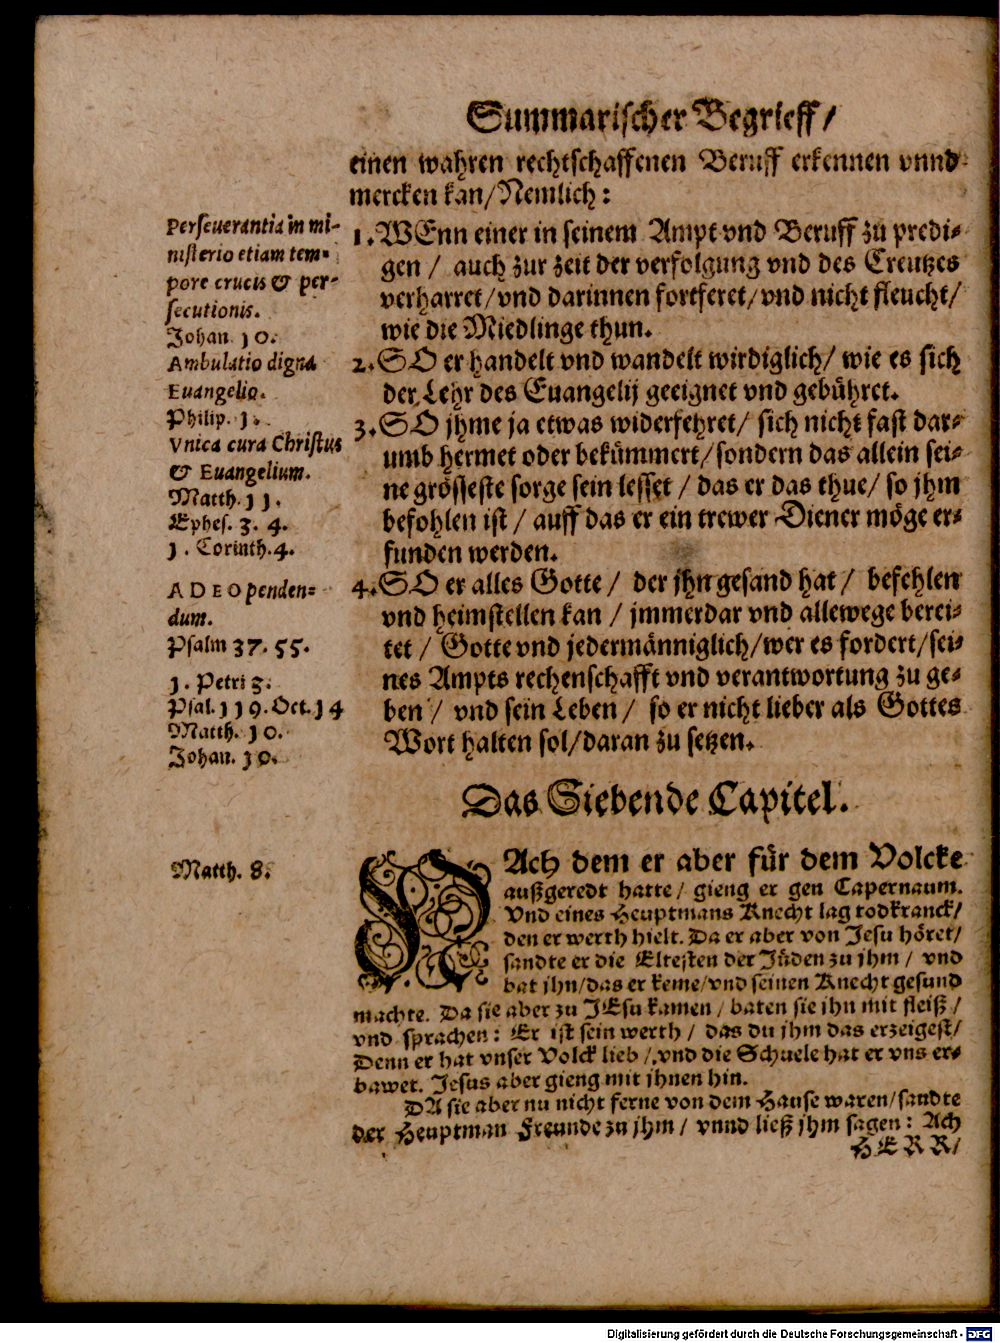 Summarischer Begrieff/
einen wahren rechtschaffenen Beruff erkennen vnnd
mercken kan/Nemlich:
Perseuerantia in mi-
nisterio etiam tem-
pore crucis & per-
secutionis.
Johan. 10.
1. WEnn einer in seinem Ampt vnd Beruff zu predi-
gen / auch zur zeit der verfolgung vnd des Creutzes
verharret/vnd darinnen fortferet/vnd nicht fleucht/
wie die Miedlinge thun.
Ambulatio digna
Euangelio.
Philip. 1.
2. SO er handelt vnd wandelt wirdiglich/ wie es sich
der Lehr des Euangelij geeignet vnd gebühret.
Vnica cura Christus
& Euangelium.
Matth. 11.
Ephes. 3. 4.
1. Corinth. 4.
3. SO jhme ja etwas widerfehret/ sich nicht fast dar-
umb hermet oder bekümmert/sondern das allein sei-
ne grösseste sorge sein lesset / das er das thue/ so jhm
befohlen ist / auff das er ein trewer Diener möge er-
funden werden.
A DEO penden-
dum.
Psalm 37. 55.
1. Petri 3.
Psal. 119. Oct. 14
Matth. 10.
Johan. 10.
4. SO er alles Gotte / der jhn gesand hat / befehlen
vnd heimstellen kan / jmmerdar vnd allewege berei-
tet / Gotte vnd jedermänniglich/wer es fordert/sei-
nes Ampts rechenschafft vnd verantwortung zu ge-
ben / vnd sein Leben / so er nicht lieber als Gottes
Wort halten sol/daran zu setzen.
Das Siebende Capitel.
Matth. 8.
NAch dem er aber für dem Volcke
außgeredt hatte/ gieng er gen Capernaum.
Vnd eines Heuptmans Knecht lag todkranck/
den er werth hielt. Da er aber von Jesu höret/
sandte er die Eltesten der Jüden zu jhm / vnd
bat jhn/das er keme/vnd seinen Knecht gesund
machte. Da sie aber zu JEsu kamen / baten sie jhn mit fleiß /
vnd sprachen: Er ist sein werth / das du jhm das erzeigest/
Denn er hat vnser Volck lieb / vnd die Schuele hat er vns er-
bawet. Jesus aber gieng mit jhnen hin.
DA sie aber nu nicht ferne von dem Hause waren/sandte
der Heuptman Freunde zu jhm / vnnd ließ jhm sagen: Ach
HERR/
Digitalisierung gefördert durch die Deutsche Forschungsgemeinschaft - DFG